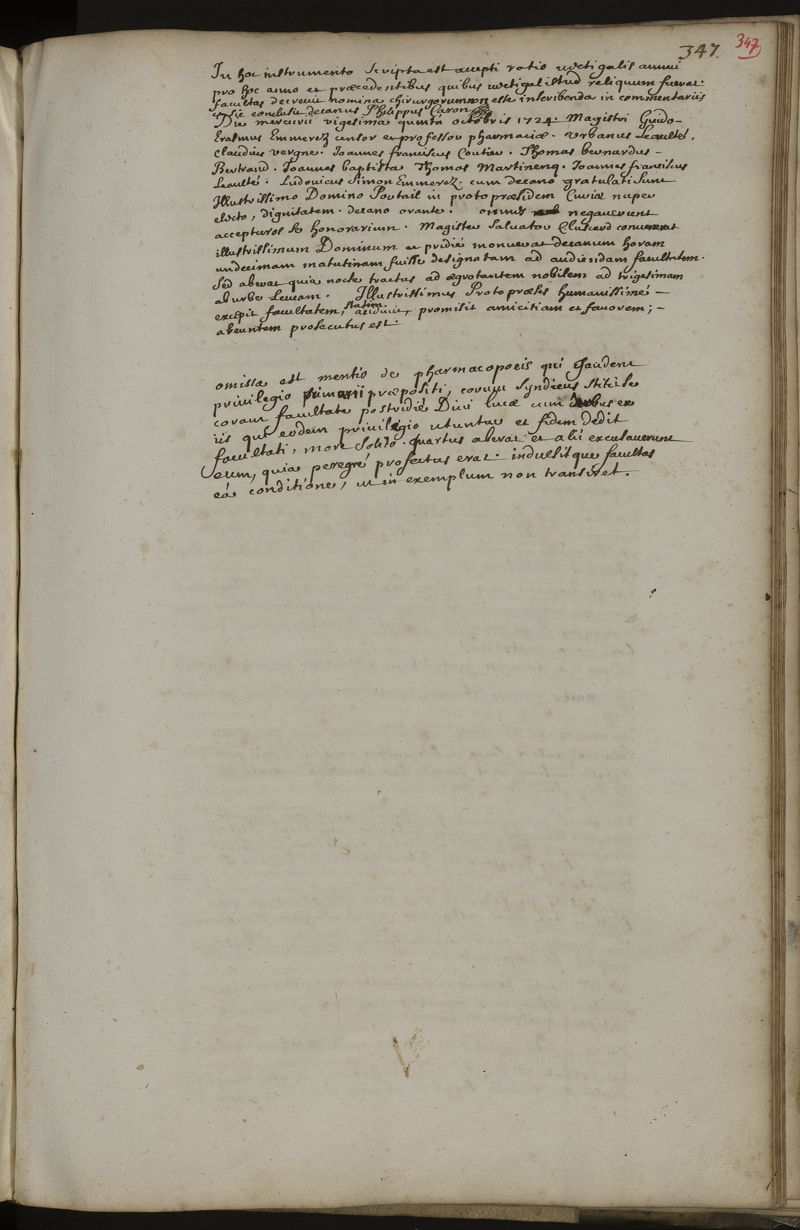 347. 347
In hoc instrumento scripta est accepti ratio vectigalis annui
pro hoc anno et præcedentibus quibus vectigal istud reliquum fuerat.
facultas decrevit nomina chirurgorum non esse inscribenda in commentariis
et sic conclusit decanus Philippus Caron
Die mercurii vigesima quinta octobris 1724. Magistri Guido-
Erasmus Emmerez censor et professor pharmaciæ. Urbanus Leaulté.
Claudius Vergne. Joannes franciscus Coutier. Thomas bernardus-
Bertrand. Joannes baptista Thomas Martinenq. Joannes franciscus
Leaulté. Ludovicus Simon Emmerez. cum decano gratulati sunt
Illustrissimo Domino Portail in protopræsidem Curiæ nuper
electo, dignitatem. decano orante. omnes negaverunt
accepturos se honorarium. Magister Salvator
illustrissimum Dominum et pridie monuerat decanum horam
undecimam matutinam fuisse designatam ad audiendam facultatem.
Sed aberat quia nocte tractus ad ægrotantem nobilem ad trigesimam
ab urbe Leucam. Illustrissimus Protopræses humanissime -
excepit facultatem, statim audivit, promisit amicitiam et favorem; -
abeuntem prosecutus est.
omissa est mentio de pharmacopoeis qui gaudent
privilegio primarii præpositi, eorum syndicus stitit se
coram facultate postridie Divi lucæ cum ex
iis qui eodem privilegio utuntur et fidem dedit
facultati, more solito. quartus aberat et alii excusaverunt
eum, quia peregré profectus erat. indulsitque facultas
eâ conditione, ut in exemplum non transiret.